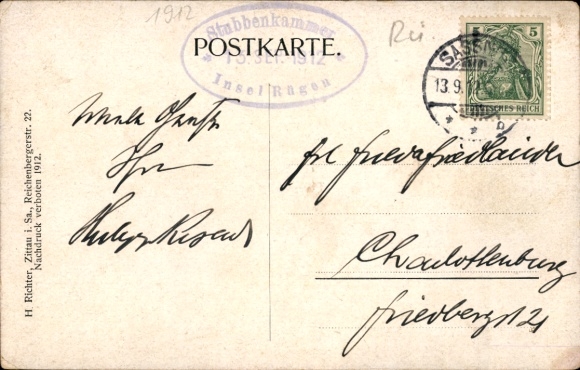 1912
Stubbenkammer
* 13. SEP. 1912 *
Insel Rügen
Rü
POSTKARTE.
5
DEUTSCHES REICH
SASSNITZ
13.9.12
* *
H. Richter, Zittau i. Sa., Reichenbergerstr. 22.
Nachdruck verboten 1912.
Ihr
Frl Frieda Friedländer
Charlottenburg
Friedbergst 21